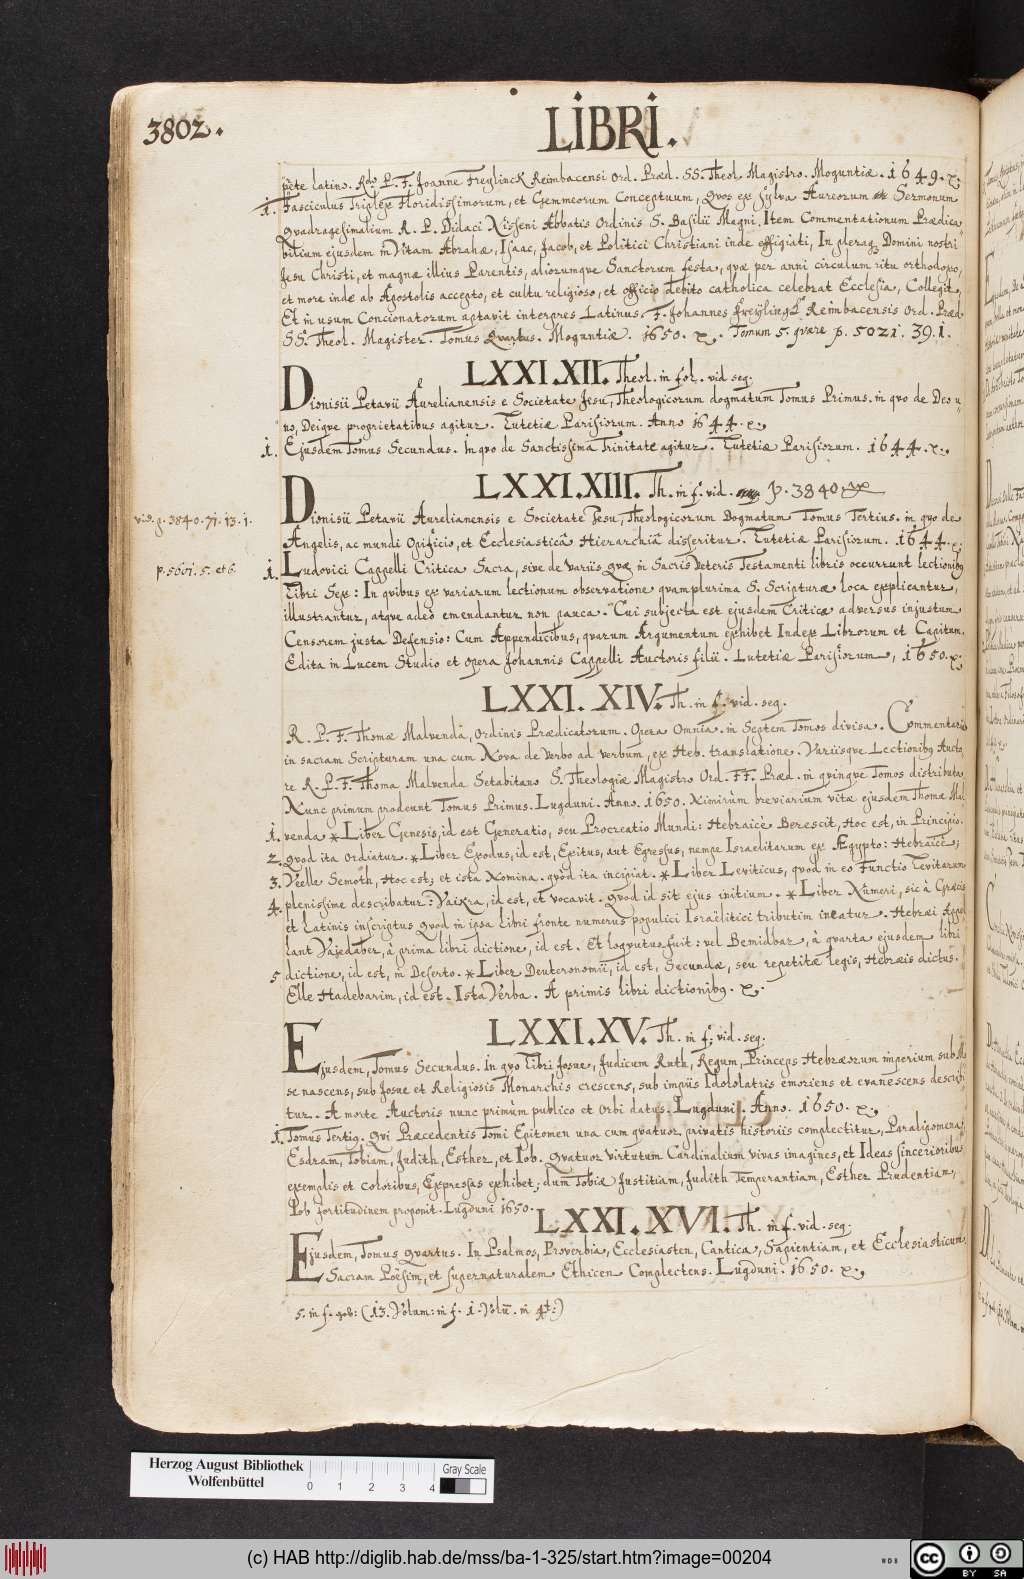 3802.
LIBRI.
pete latino. Rdo P. F. Joanne Freylinck Reimbacensi Ord. Præd. SS. Theol. Magistro. Moguntiæ. 1649.
1. Fasciculus Triplex Floridissimorum, et Gemmeorum Conceptuum, Quos ex sylva Aureorum Sermonum
Quadragesimalium R. P. Didaci Nisseni Abbatis Ordinis S. Basilii Magni, Item Commentationum Prædica„
bilium ejusdem in Vitam Abrahæ, Isaac, Jacob, et Politici Christiani inde effigiati, In pleraq. Domini nostri
Jesu Christi, et magnæ illius Parentis, aliorumque Sanctorum festa, quæ per anni circulum ritu orthodoxo,
et more inde ab Apostolis accepto, et cultu religioso, et officio debito catholica celebrat Ecclesia, Collegit,
Et in usum Concionatorum aptavit interpres Latinus. F. Johannes Freylingk Reimbacensis Ord. Præd.
SS. Theol. Magister. Tomus Quartus. Moguntiæ. 1650. Tomum 5. quære p. 5021. 39. 1.
LXXI. XII. Theol. in fol. vid seq.
Dionisii Petavii Aurelianensis e Societate Jesu, Theologicorum dogmatum Tomus Primus. in quo de Deo u„
no, Deique proprietatibus agitur. Lutetiæ Parisiorum. Anno 1644.
1. Ejusdem Tomus Secundus. In quo de Sanctissima Trinitate agitur. Lutetiæ Parisiorum. 1644.
LXXI. XIII. Th. in f. vid. p. 3840.
Dionisii Petavii Aurelianensis e Societate Jesu, Theologicorum Dogmatum Tomus Tertius. in quo de
vid. p. 3840. 71. 13. 1.
Angelis, ac mundi Opificio, et Ecclesiasticâ Hierarchiâ disseritur. Lutetiæ Parisiorum. 1644.
p. 5601. 5. et 6.
1. Ludovici Cappelli Critica Sacra, sive de Variis quæ in Sacris Veteris Testamenti libris occurrunt lectionibq
Libri Sex: In quibus ex variarum lectionum observatione quamplurima S. Scripturæ loca explicantur,
illustrantur, atque adeo emendantur non pauca. Cui subjecta est ejusdem Criticæ adversus injustum
Censorem justa Defensio: Cum Appendicibus, quarum Argumentum exhibet Index Librorum et Capitum.
Edita in Lucem Studio et opera Johannis Cappelli Auctoris filii. Lutetiæ Parisiorum, 1650.
LXXI. XIV. Th. in f. vid. seq.
R. P. F. Thomæ Malvenda, Ordinis Prædicatorum. Opera Omnia. in Septem Tomos divisa. Commentaria
in sacram Scripturam una cum Nova de Verbo ad verbum, ex Heb. translatione. Variisque Lectionibq Aucto„
re R. P. F. Thoma Malvenda Setabitano S. Theologiæ Magistro Ord. FF. Præd. in quinque Tomos distributa,
Nunc primum prodeunt Tomus Primus. Lugduni. Anno. 1650. Nimirùm breviarium vitæ ejusdem Thomæ Mal„
1. venda * Liber Genesis, id est Generatio, seu Procreatio Mundi: Hebraicè Berescit, Hoc est, in Principio.
2. quod ita Ordiatur. * Liber Exodus, id est, Exitus, aut Egressus, nempe Israelitarum ex Ægypto: Hebraicè;
3. Veelle Semoth, Hoc est; et ista Nomina. quod ita incipiat. * Liber Leviticus, quod in eo Functio Levitarum
4. plenissime describatur: Vaikra, id est, et vocavit. quod id sit ejus initium. * Liber Numeri, sic à Græcis
et Latinis inscriptus quod in ipsa libri fronte numerus populici Israëlitici tributim ineatur. Hebræi Appel„
lant Vajedaber, à prima libri dictione, id est. Et loquutus fuit: vel Bemidbar, à quarta ejusdem libri
5 dictione, id est, in Deserto. * Liber Deuteronomii, id est, Secundæ, seu repetitæ legis, Hebræis dictus.
Elle Hadebarim, id est. Ista Verba. A primis libri dictionibq.
LXXI. XV. Th. in f. vid. seq.
Ejusdem, Tomus Secundus. In quo Libri Josue, Judicum Ruth, Regum, Princeps Hebræorum imperium sub Mo
se nascens, sub Josue et Religiosis Monarchis crescens, sub impiis Idololatris emoriens et evanescens describi
tur. A morte Auctoris nunc primùm publico et Orbi datus. Lugduni. Anno. 1650.
1. Tomus Tertiq. Qui Præcedentis Tomi Epitomen una cum quatuor privatis historiis complectitur, Paralipomena,
Esdram, Tobiam, Judith, Esther, et Iob. Quatuor virtutum Cardinalium vivas imagines, et Ideas sincerioribus
exemplis et coloribus, Expressas exhibet; dum Tobiæ Justitiam, Judith Temperantiam, Esther Prudentiam,
Iob fortitudinem proponit. Lugduni 1650.
LXXI. XVI. Th. in f. vid. seq.
Ejusdem, Tomus Quartus. In Psalmos, Proverbia, Ecclesiasten, Cantica, Sapientiam, et Ecclesiasticum
Sacram Poësim, et supernaturalem Ethicen Complectens. Lugduni. 1650.
5. in f. (13. Volum: in f. 1. Volū. in 4t.)
Herzog August Bibliothek
Wolfenbüttel
0 1 2 3 4
Gray Scale
(c) HAB http://diglib.hab.de/mss/ba-1-325/start.htm?image=00204
WDB
cc BY SA